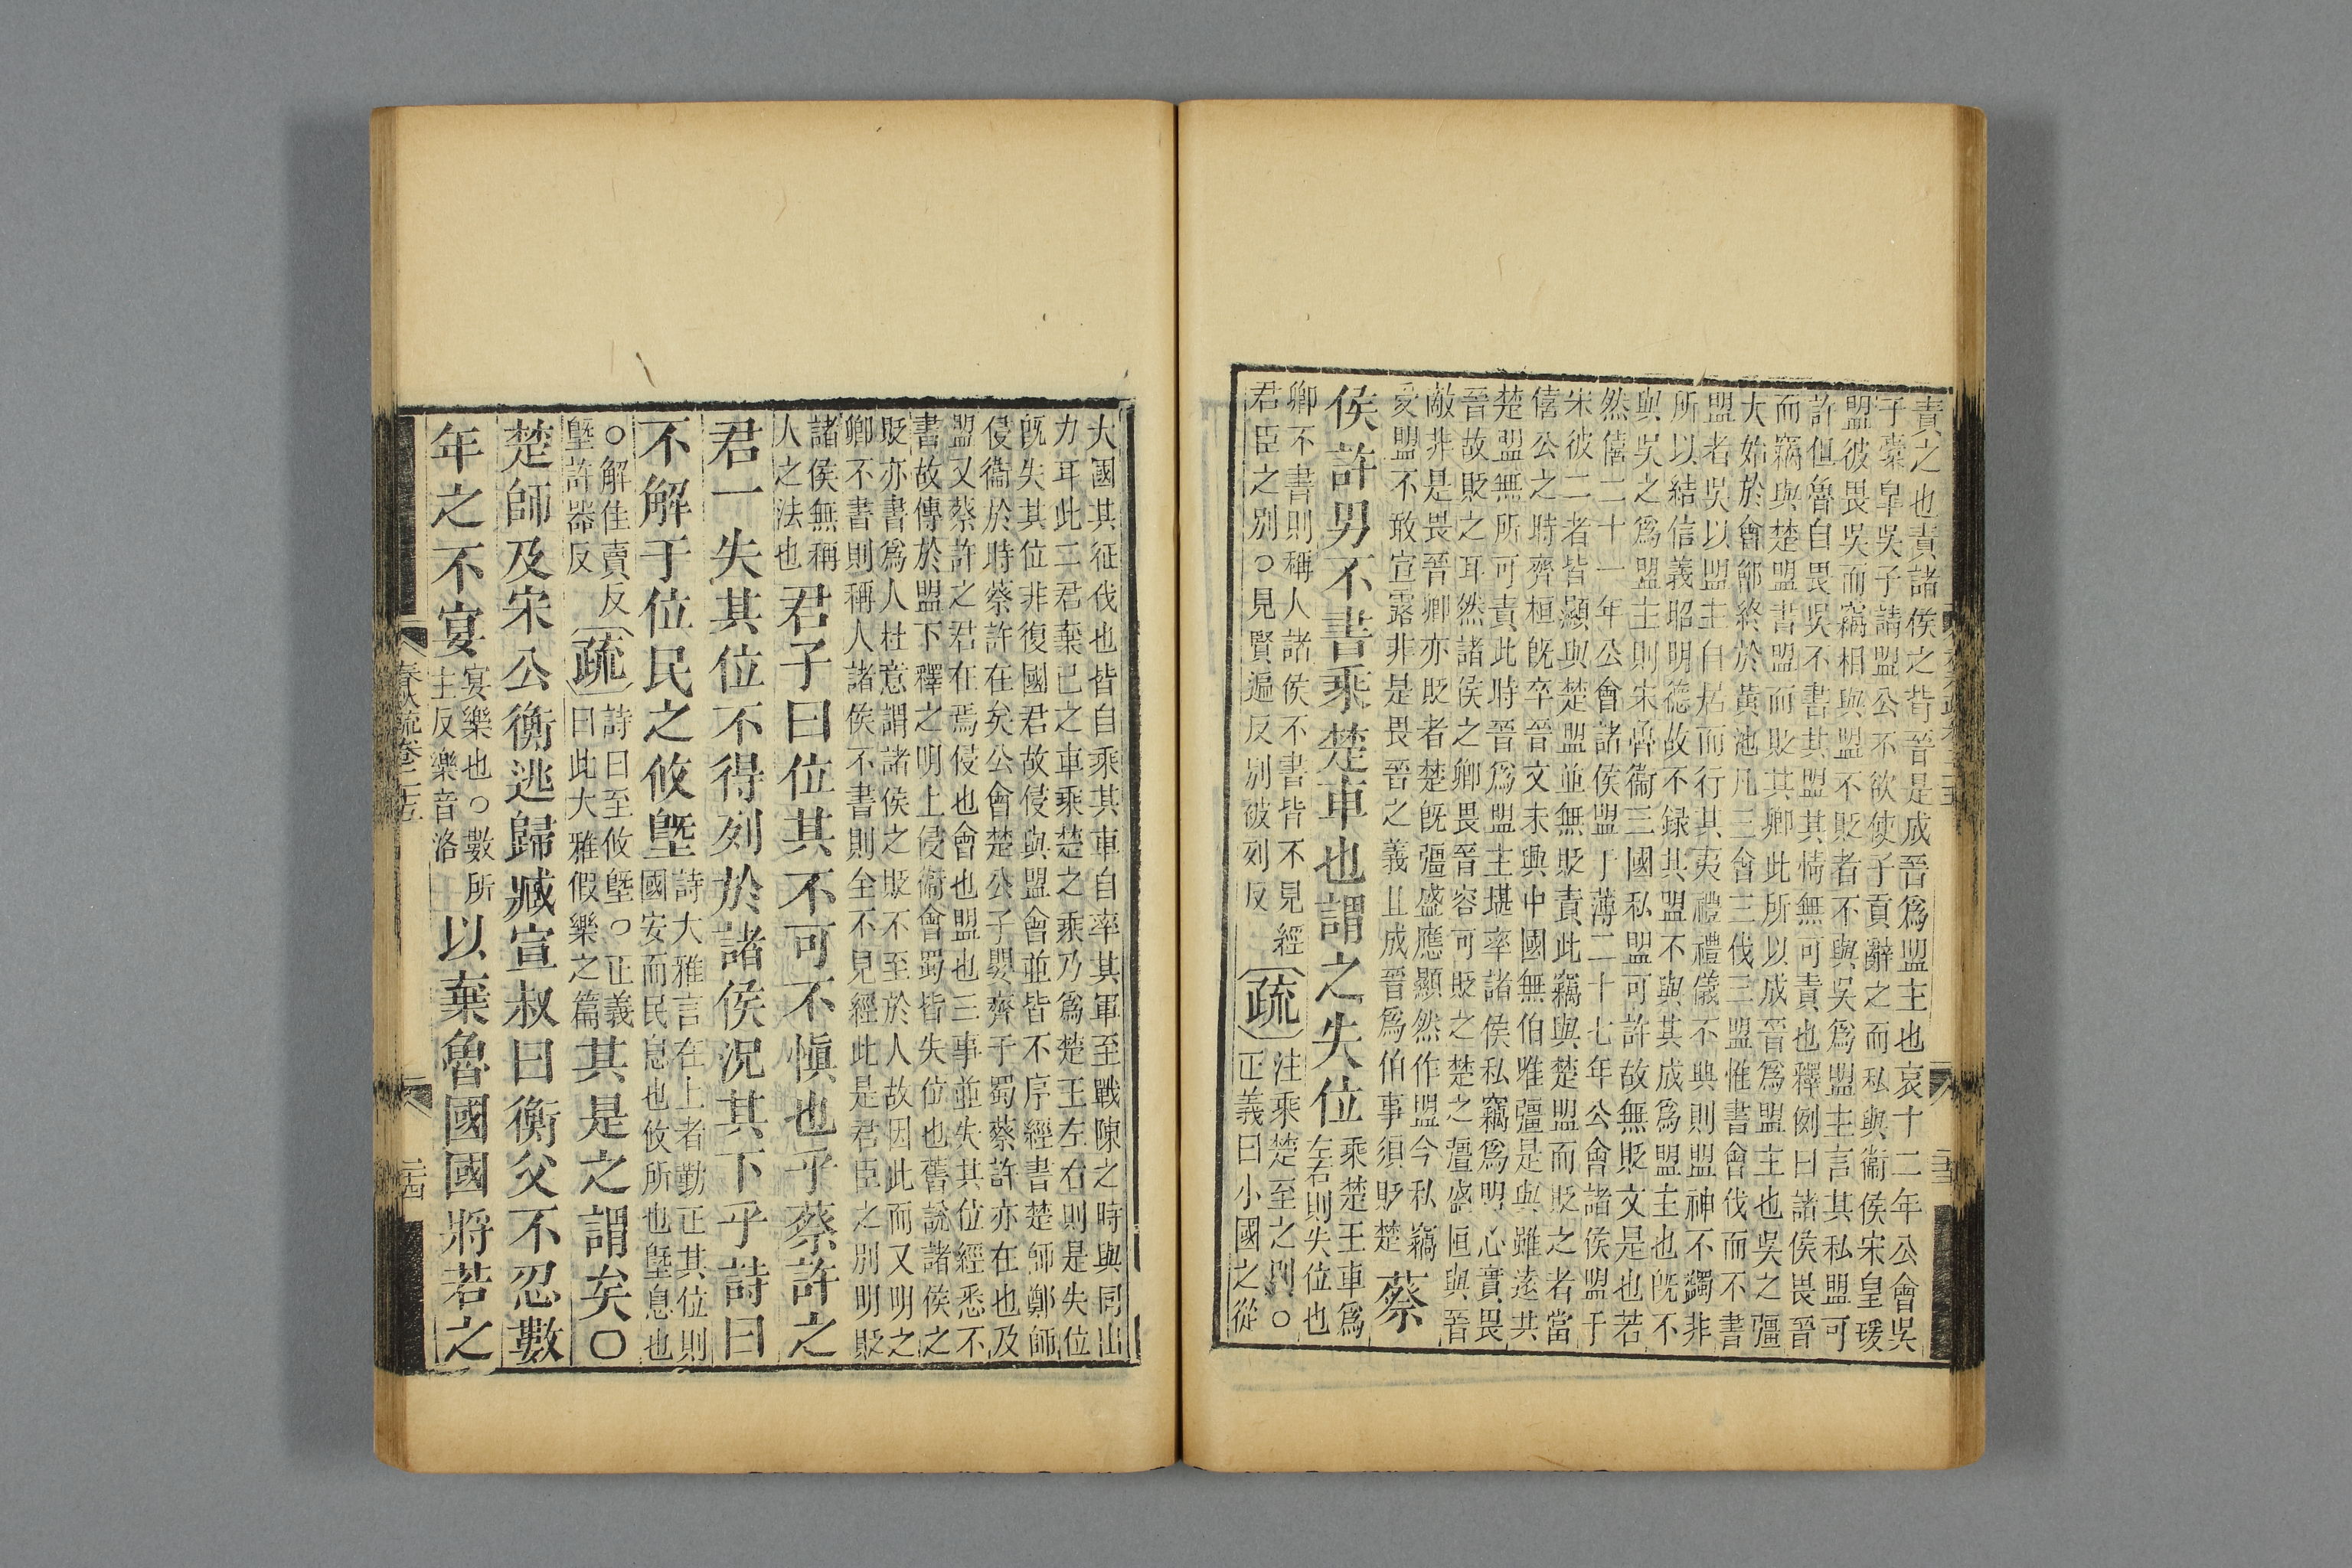 責之也責諸侯之背晉是成晉爲盟主也哀十二年公會吳
子橐皐吳子請盟公不欲使子貢辭之而私與衞侯宋皇瑗
盟彼畏吳而竊相與盟不貶者不與吳爲盟主言其私盟可
許但魯自畏吳不書其盟其情無可責也釋例曰諸侯畏晉
而竊與楚盟書盟而貶其卿此所以成晉爲盟主也吳之彊
大始於會鄫終於黃池凡三會三伐三盟惟書會伐而不書
盟者吳以盟主自居而行其夷禮禮儀不典則盟神不蠲非
所以結信義昭明德故不録其盟不與其成爲盟主也旣不
與吳之爲盟主則宋魯衞三國私盟可許故無貶文是也若
然僖二十一年公會諸侯盟于薄二十七年公會諸侯盟于
宋彼二者皆顯與楚盟並無貶責此竊與楚盟而貶之者當
僖公之時齊桓旣卒晉文未興中國無伯唯彊是與雖遂共
楚盟無所可責此時晉爲盟主堪率諸侯私竊爲明心實畏
晉故貶之耳然諸侯之卿畏晉容可貶之楚之彊盛恒與晉
敵非是畏晉卿亦貶者楚旣彊盛應顯然作盟今私竊
受盟不敢宣露非是畏晉之義且成晉爲伯事須貶楚
蔡
侯許男不書乘楚車也謂之失位
乘楚王車爲
左右則失位也
卿不書則稱人諸侯不書皆不見經
君臣之別○見賢遍反別彼列反
疏
注乘楚至之別○
正義曰小國之從
大國其征伐也皆自乘其車自率其軍至戰陳之時與同出
力耳此二君棄已之車乘楚之乘乃爲楚王左右則是失位
旣失其位非復國君故侵與盟會並皆不序經書楚師鄭師
侵衞於時蔡許在矣公會楚公子嬰齊于蜀蔡許亦在也及
盟又蔡許之君在焉侵也會也盟也三事並失其位經悉不
書故傳於盟下釋之明上侵衞會蜀皆失位也舊説諸侯之
貶亦書爲人杜意謂諸侯之貶不至於人故因此而又明之
卿不書則稱人諸侯不書則全不見經此是君臣之別明貶
諸侯無稱
人之法也
君子曰位其不可不愼也乎蔡許之
君一失其位不得列於諸侯況其下乎詩曰
不解于位民之攸塈
詩大雅言在上者勤正其位則
國安而民息也攸所也塈息也
○解佳賣反
塈許器反
疏
詩曰至攸塈○正義
曰此大雅假樂之篇
其是之謂矣○
楚師及宋公衡逃歸臧宣叔曰衡父不忍數
年之不宴
宴樂也○數所
主反樂音洛
以棄魯國國將若之
春秋疏卷二十五
二十四